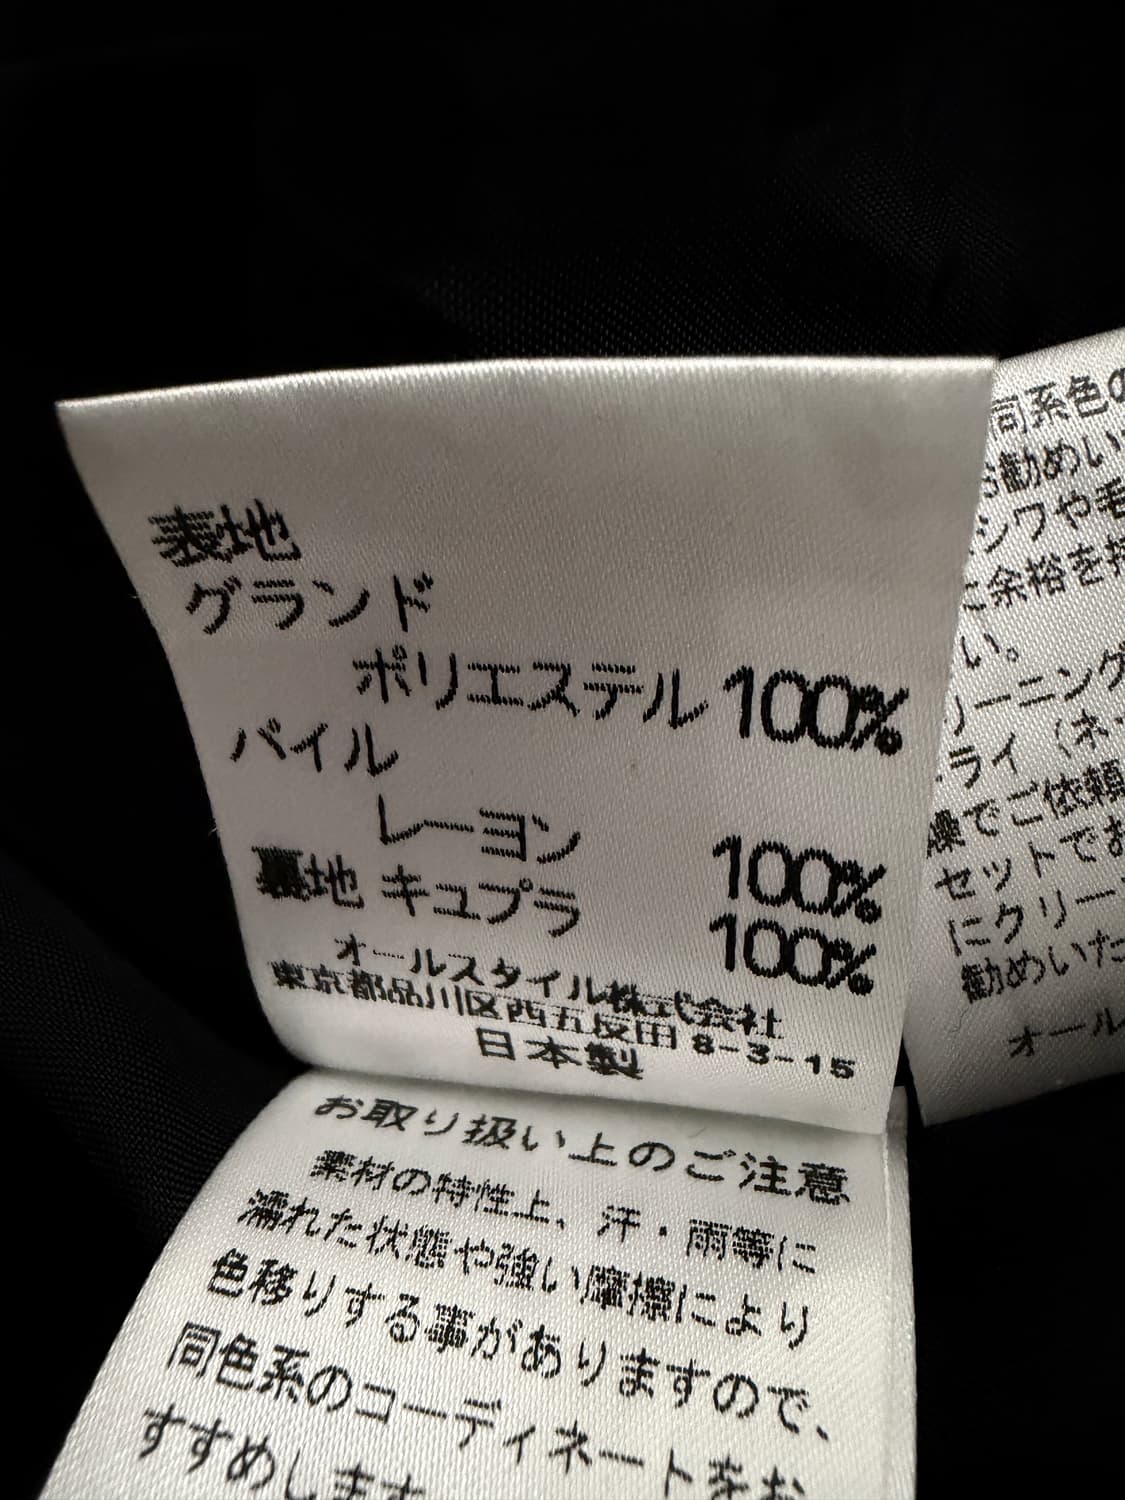 表地
グランド
ポリエステル100%
パイル
レーヨン 100%
裏地 キュプラ 100%
オールスタイル株式会社
東京都品川区西五反田 8-3-15
日本製
お取り扱い上のご注意
素材の特性上、汗・雨等に
濡れた状態や強い摩擦により
色移りする事がありますので、
同色系のコーディネートをお
すすめします
同系色の
お勧めい
シワや毛
に余裕を持
い。
リーニング
ライ(ネッ
燥でご依頼
セットでお
にクリー
勧めいた
オール